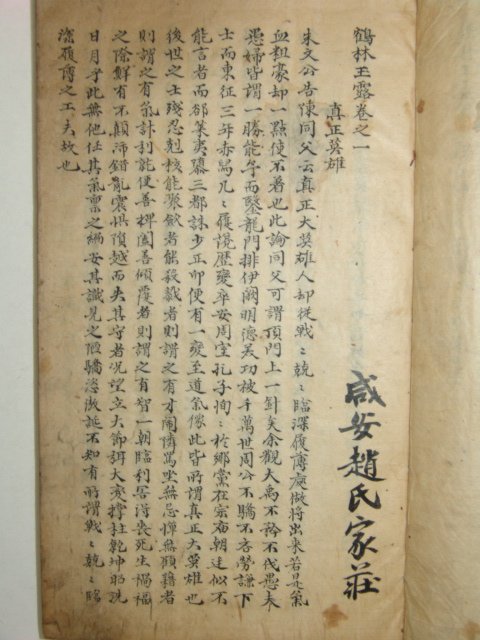 鶴林玉露卷之一
真正英雄
朱文公告陳同父云真正大英雄人却從戰〻兢〻臨深履薄處做將出來若是氣
血粗豪却一點使不着也此論同父可謂頂門上一針矣余觀大禹不矜不伐愚夫
愚婦皆謂一勝能予而鑿龍門排伊闕明德美功被千萬世周公不驕不吝勞謙下
士而東征三年赤舄几〻履讒歷變卒安周室孔子恂〻於鄉黨在宗廟朝廷似不
能言者而卻萊夷墮三都誅少正卯便有一變至道氣像此皆所謂真正大英雄也
後世之士殘忍刻核能聚斂者能殺戮者則謂之有才鬧隣罵坐無忌憚無顧藉者
則謂之有氣計利就便善捭闔善傾覆者則謂之有智一朝臨利害得喪死生禍福
之際鮮有不顛沛錯亂震惧隕越而失其守者况望立大節弭大変撐拄乾坤昭洗
日月乎此無他任其氣禀之偏安其識見之陋驕恣傲誕不知有所謂戰〻兢〻臨
深履薄之工夫故也
咸安趙氏家莊